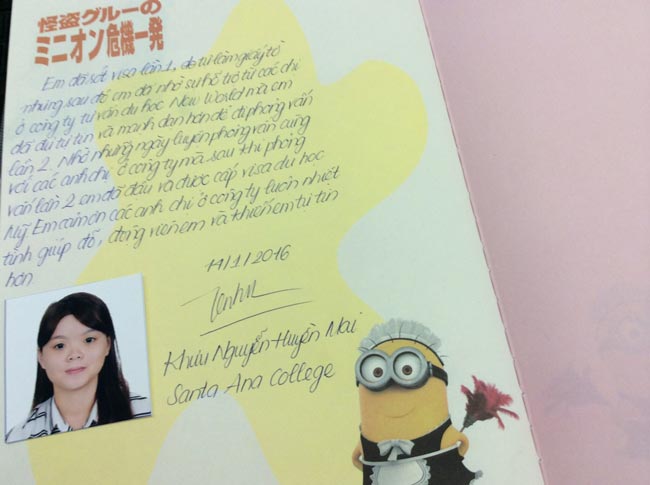 怪盗グルーの
ミニオン危機一発
Em đã rớt visa lần 1, do tự làm giấy tờ
nhưng sau đó em đã nhờ sự hỗ trợ từ các chị
ở công ty tư vấn du học New World mà em
đã đủ tự tin và mạnh dạn hơn để đi phỏng vấn
lần 2. Nhờ những ngày luyện phỏng vấn cùng
với các anh chị ở công ty mà sau khi phỏng
vấn lần 2 em đã đậu và được cấp visa du học
Mỹ. Em cảm ơn các anh chị ở công ty luôn nhiệt
tình giúp đỡ, động viên em và khiến em tự tin
hơn
14/1/2016
Khưu Nguyễn Huyền Mai
Santa Ana College